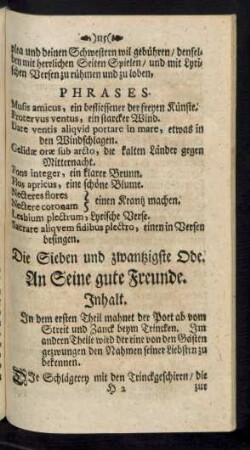 )115(
plea und deinen Schwestern wil gebühren/ densel-
ben mit herrlichen Seiten Spielen/ und mit Lyri-
schen Versen zu rühmen und zu loben.
PHRASES.
Musis amicus, ein beflissener der freyen Künste.
Protervus ventus, ein starcker Wind.
Dare ventis aliqvid portare in mare, etwas in
den Windschlagen.
Gelidæ oræ sub arcto, die kalten Länder gegen
Mitternacht.
Fons integer, ein klarer Brunn.
Flos apricus, eine schöne Blume.
Necteres flores
Nectere coronam } einen Krantz machen.
Lesbium plectrum, Lyrische Verse.
Sacrare aliqvem fidibus plectro, einen in Versen
besingen.
Die Sieben und zwantzigste Ode.
An Seine gute Freunde.
Inhalt.
In dem ersten Theil mahnet der Poet ab vom
Streit und Zanck beym Trincken. Im
andern Theile wird der eine von den Gästen
gezwungen den Nahmen seiner Liebsten zu
bekennen.
Die Schlägerey mit den Trinckgeschiren/ die
H 2 zur